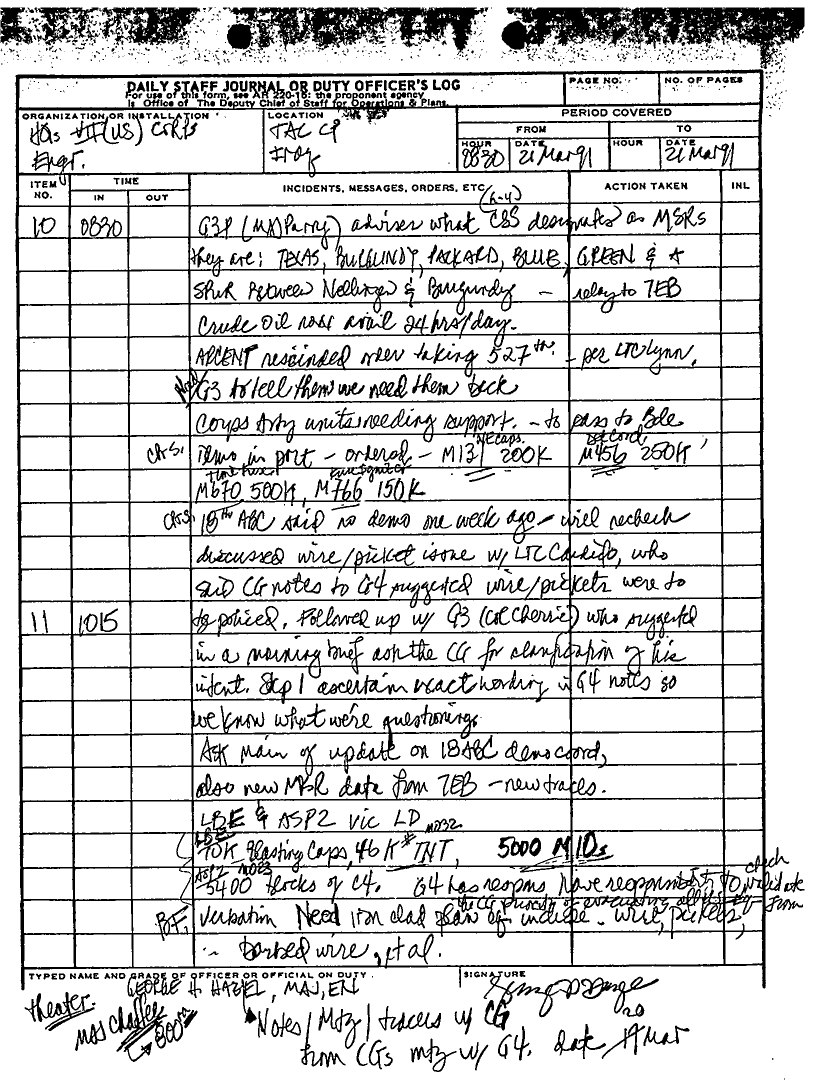 DAILY STAFF JOURNAL OR DUTY OFFICER'S LOG
For use of this form, see AR 220-15: the proponent agency
is Office of The Deputy Chief of Staff for Operations & Plans.
PAGE NO.
NO. OF PAGES
ORGANIZATION OR INSTALLATION
HQs VII (US) CORPS
Engr.
LOCATION
TAC CP
Iraq
PERIOD COVERED
FROM
TO
HOUR
0830
DATE
21 Mar 91
HOUR
DATE
21 Mar 91
ITEM NO.
TIME
IN
OUT
INCIDENTS, MESSAGES, ORDERS, ETC
ACTION TAKEN
INL
10 0830 G3P (MAJ Parry) advises what CSS designates as MSRs
they are: TEXAS, BURGUNDY, PACKARD, BLUE, GREEN & A
SPUR between Nellingen & Burgundy — relay to 7EB
Crude Oil now avail 24 hrs/day.
ARCENT rescinded order taking 527th. - per LTC Lynn.
Need G3 to tell them we need them back
Corps Arty units needing support. - to pass to Bde
demo in port - ordered - M131 200K M456 250K
M670 500K, M766 150K
18th ABC said no demo one week ago - will recheck
discussed wire/picket issue w/ LTC , who
said CG notes to G4 suggested wire/pickets were to
11 1015 be policed. Followed up w/ G3 (Col Cherrie) who suggested
in a morning brief ask the CG for clarification of his
intent. Step 1 ascertain exact wording in G4 notes so
we know what we're questioning.
Ask main of update on 18ABC demo coord,
also new MSR data from 7EB - new traces.
LBE & ASP2 vic LD
LBE
70K Blasting Caps, 46K # TNT, 5000 M
ASP2
5400 blocks of C4. G4 has respons, have
Verbatim Need iron clad plan of wire, pickets,
barbed wire, et al.
TYPED NAME AND GRADE OF OFFICER OR OFFICIAL ON DUTY
GEORGE H. , MAJ, EN
SIGNATURE
theater.
MAJ Chaffee
Notes / Mtg / traces w/ CG
from CGs mtg w/ G4. date 19 Mar
20